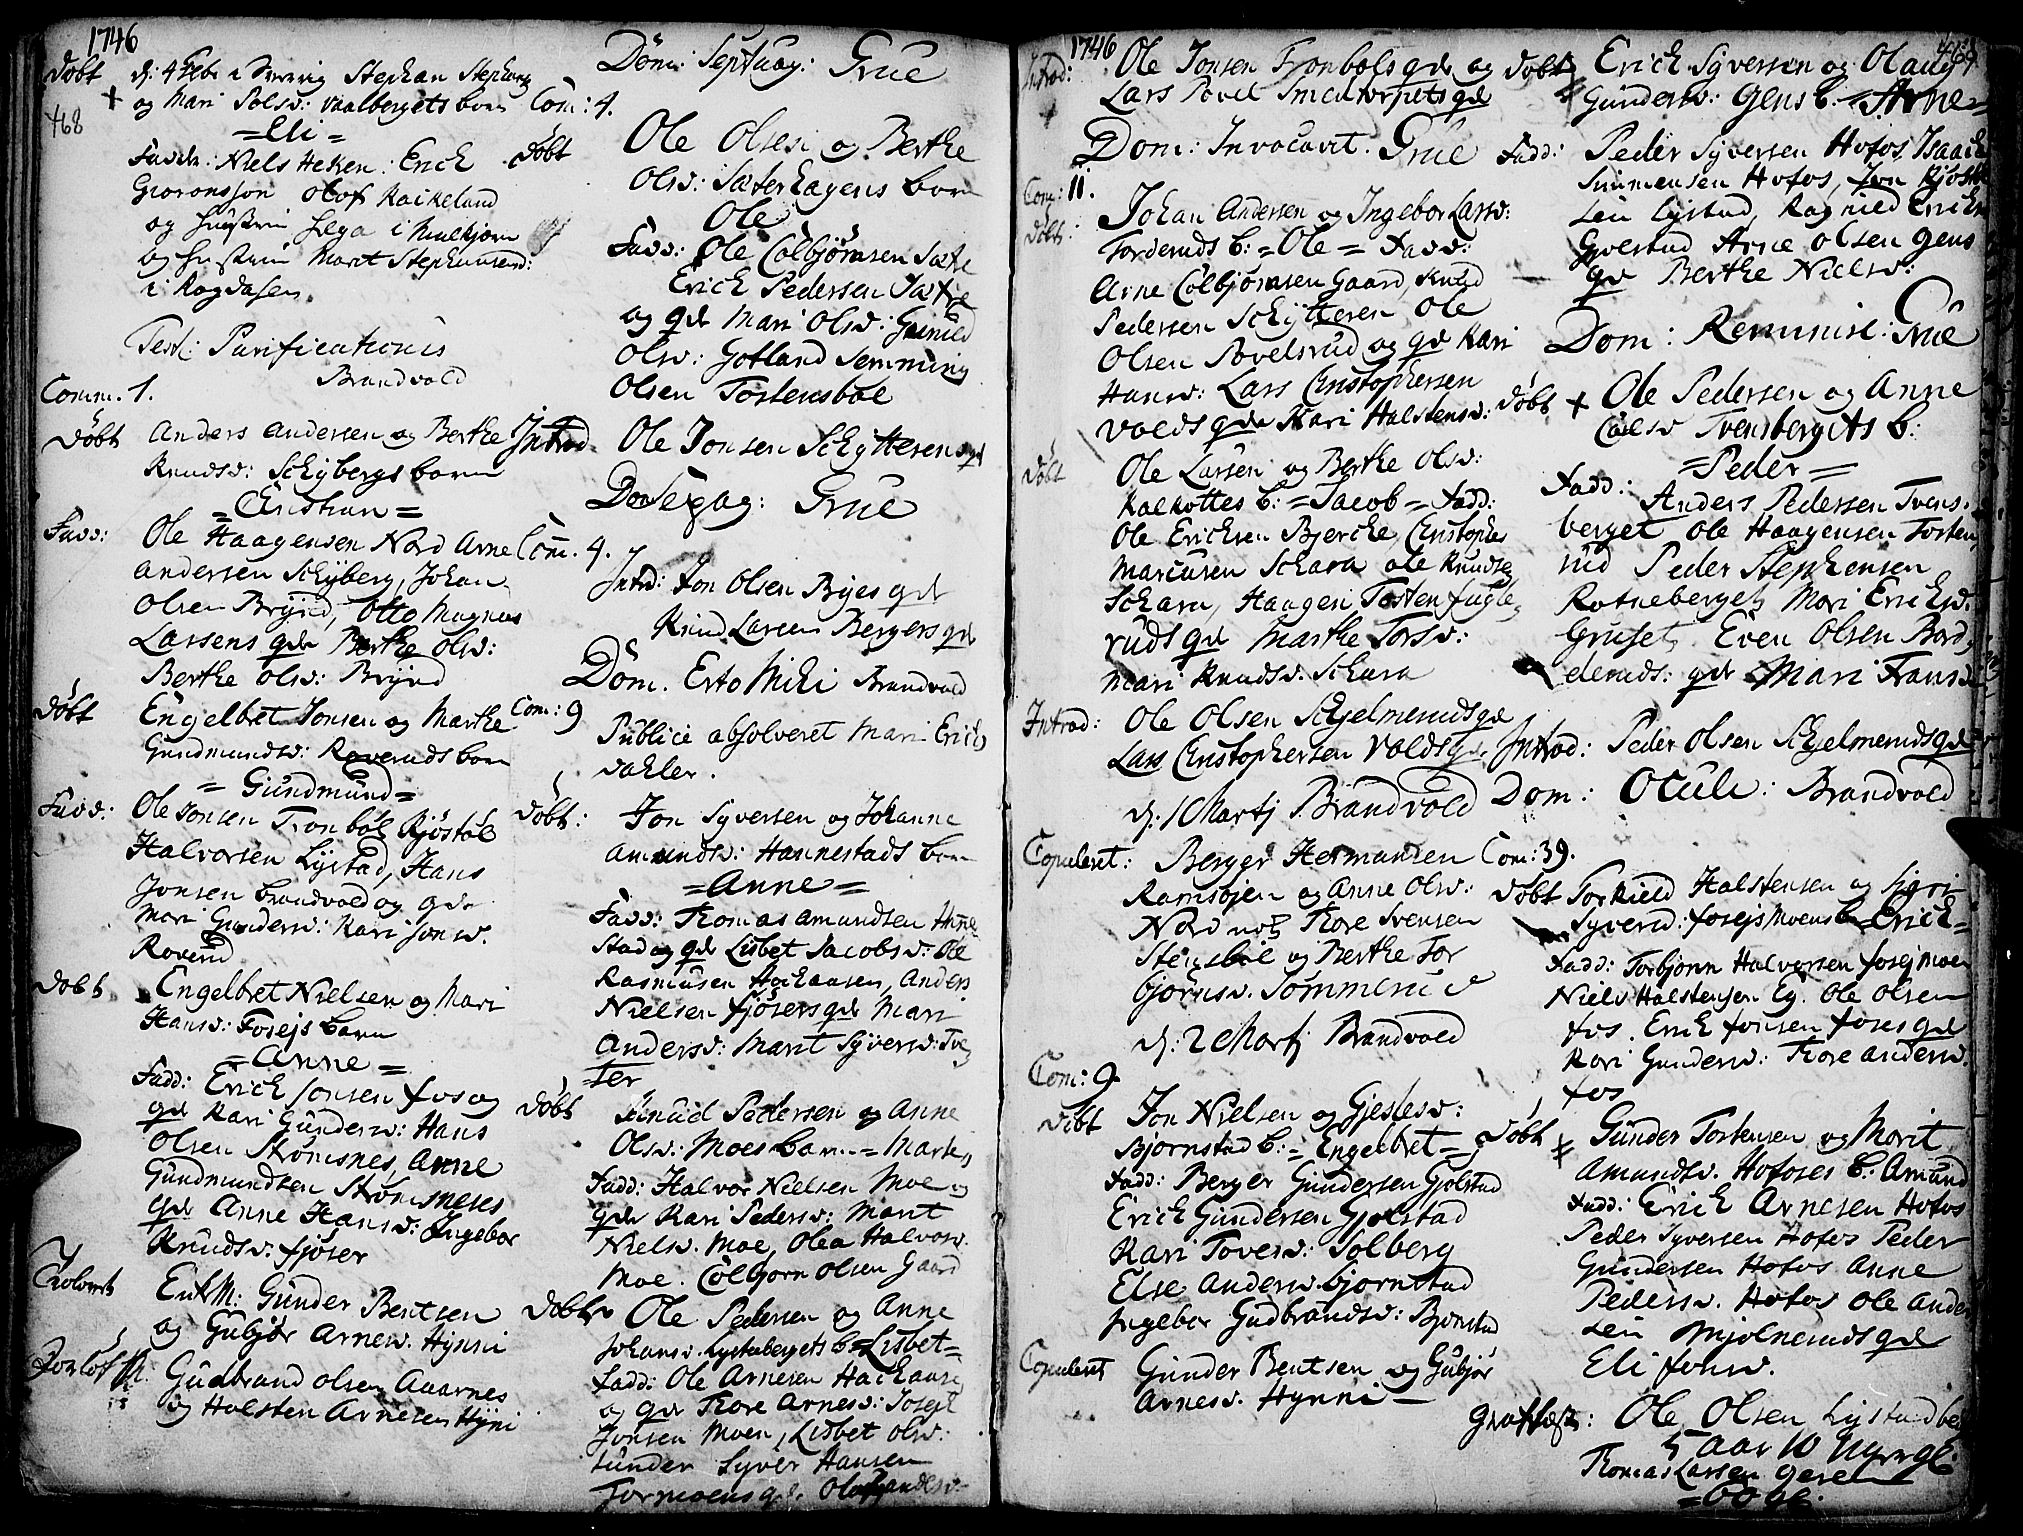 1746
468
Døbt d: 4 Febr i Stephan Stephans
og Mari Polsd: Vaalbergets barn
=Eli=
Fadd: Niels Heken: Erick
Olof Raikeland
og hustru Helga i Mulkjern
og hustru Marit Stephansd:
i Rögdasen.
Fest: Purificationis
Brandvold
Comm. 1.
Døbt Anders Andersen og Berthe
Knudsd: Schybergs barn
=Christian=
Fadd: Ole Haagensen Nord Arne
Andersen Schyberg, Johan
Olsen Bryed, Otto Magnus
Larsens qde Berthe Olsd:
Berthe Olsd: Bryed
Døbt Engelbret Jonsen og Marthe
Gundmundsd: Roveruds barn
=Gundmund=
Fadd: Ole Jonsen Tronbøl Kjøstol
Halvorsen Lystad, Hans
Jonsen Brandvold og qde
Mari Gundersd: Kari Jonsd.
Roverud
Døbt Engelbret Nielsen og Mari
Hansd: Fosejs barn
=Anne=
Fadd: Erich Jonsen Fos og
qde Kari Gundersd: Hans
Olsen Strömsnes, Anne
Gundmundsen Strömsneses
qde Anne Hansd: Ingebor
Knudsd: Fjøser
Trolovet EnkM: Gunder Bentsen
og Gubjør Arnesd. Hynni
Forlof M. Gudbrand Olsen Aaarnes
og Halsten Arnesen Hyni
Dom: Septuag: Grue
Com: 4.
Døbt Ole Olsen og Berthe
Olsd: Sæterhagens barn
Ole
Fadd: Ole Colbjørnsen Sætre
Erich Pedersen Sætre
og qde Mari Olsd: Gunild
Olsd: Gotland Semming
Olsen Tostensbøl
Introd. Ole Jonsen Schytteren qde
Dom Sexag: Grue
Com. 4.
Introd: Jon Olsen Byes qde
Knud Larsen Bergers qde
Dom. Esto Mihi Brandvold
Com: 9
Publice absolveret Mari Erichs
dahler.
Døbt: Jon Syversen og Johanne
Amundsd: Hannestads barn
=Anne=
Fadd: Thomas Amundsen Hanne
stad og qde Lisbet Jacobsd: Ole
Rasmusen Hochaasen, Anders
Nielsen Fjøsers qde Mari
Andersd: Marit Syversd: Tve
ter
Døbt Knud Pedersen og Anne
Olsd: Moes barn = Marten
Fadd: Halvor Nielsen Moe og
qde Kari Pedersd: Marit
Nielsd. Moe, Olea Halvorsd.
Moe. Colbjorn Olsen Gaard
Døbt Ole Pedersen og Anne
Johansd. Lystabergets b=Lisbet=
Fadd: Ole Arnesen Hochaasen
og qde Thore Arnesd: Joseph
Jonsen Moen, Lisbet Olsd:
Sunder Syver Hansen
Tormoens qde
1746 469
Introd: Ole Jonsen Tronbols qde og
Lars Povel Smedtorpets qde
Dom: Invocavit. Grue
Com: 11.
Døbt: Johan Andersen og Ingebor Larsd:
Torderuds b: =Ole= Fadd:
Arne Colbjørnsen Gaard, Knud
Pedersen Schytteren Ole
Olsen Povelsrud og qde Kari
Hansd: Lars Christophersen
Volds qde Kari Halstensd:
Døbt Ole Larsen og Berthe Olsd:
Kalkottes b: =Jacob= Fadd:
Ole Erichsen Bjercke, Christopher
Marcusen Schara Ole Knudsen
Schara, Haagen Tosten Fugle
ruds qde Marthe Torsd:
Mari Knudsd: Schara
Introd: Ole Olsen Schjelmeruds qde
Lars Christophersen Volds qde
d: 1 Martj Brandvold
Copuleret: Berger Hermansen
Ramsøjen og Anne Olsd:
Nord Thore Svensen
Stensbøl og Berthe Tor
bjørnsd. Sommerud
d: 2 Martj Brandvold
Com: 9.
Døbt Jon Nielsen og Gjestesd:
Bjornstad b: =Engelbret=
Fadd: Berger Gundersen Gjolstad
Erich Gundersen Gjolstad
Kari Tovesd: Solberg
Else Andersd. Bjornstad
Ingebor Gudbrandsd: Bjornstad
Copuleret Gunder Bentsen og Gubjør
Arnesd. Hynni
Døbt Erich Syversen og Olaug
Gundersd: Gens b. =Arne=
Fadd: Peder Syversen Hofos, Isaach
Simmensen Hofos, Jon Kjøstel
sen Lystad, Ragnild Erichsd
Gjerstad Arne Olsen Gens
qde Berthe Nielsd:
Dom: Reminisc: Grue
Døbt Ole Pedersen og Anne
Carlsd Tvensbergets b:
=Peder=
Fadd: Anders Pedersen Tvens
berget Ole Haagensen Tosten
rud Peder Stephensen
Rotneberget Mari Erichsd.
Gruset Even Olsen Bord
deruds: qde Mari Hansd
Introd: Peder Olsen Schjelmeruds qde
Dom: Oculi: Brandvold
Com: 39.
Døbt Torkield Halstensen og Sigri
Syversd: Fosejs Moens b. Erich=
Fadd: Torbjorn Halvorsen Fosej Moen
Niels Halstensen Eg. Ole Olsen
Fos. Erich Jonsen Foses qde
Kari Gundersd: Thore Andersd.
Fos
Døbt Gunder Tostensen og Marit
Amundsd. Hofoses b. Amund
Fadd: Erich Arnesen Hofos
Peder Syversen Hofos Peder
Gundersen Hofos Anne
Pedersd. Hofos Ole Ander
sen Mjolneruds qde
Eli Jonsd.
Graffæst: Ole Olsen Lystad
5 Aar 10
Thomas Larsen
=60